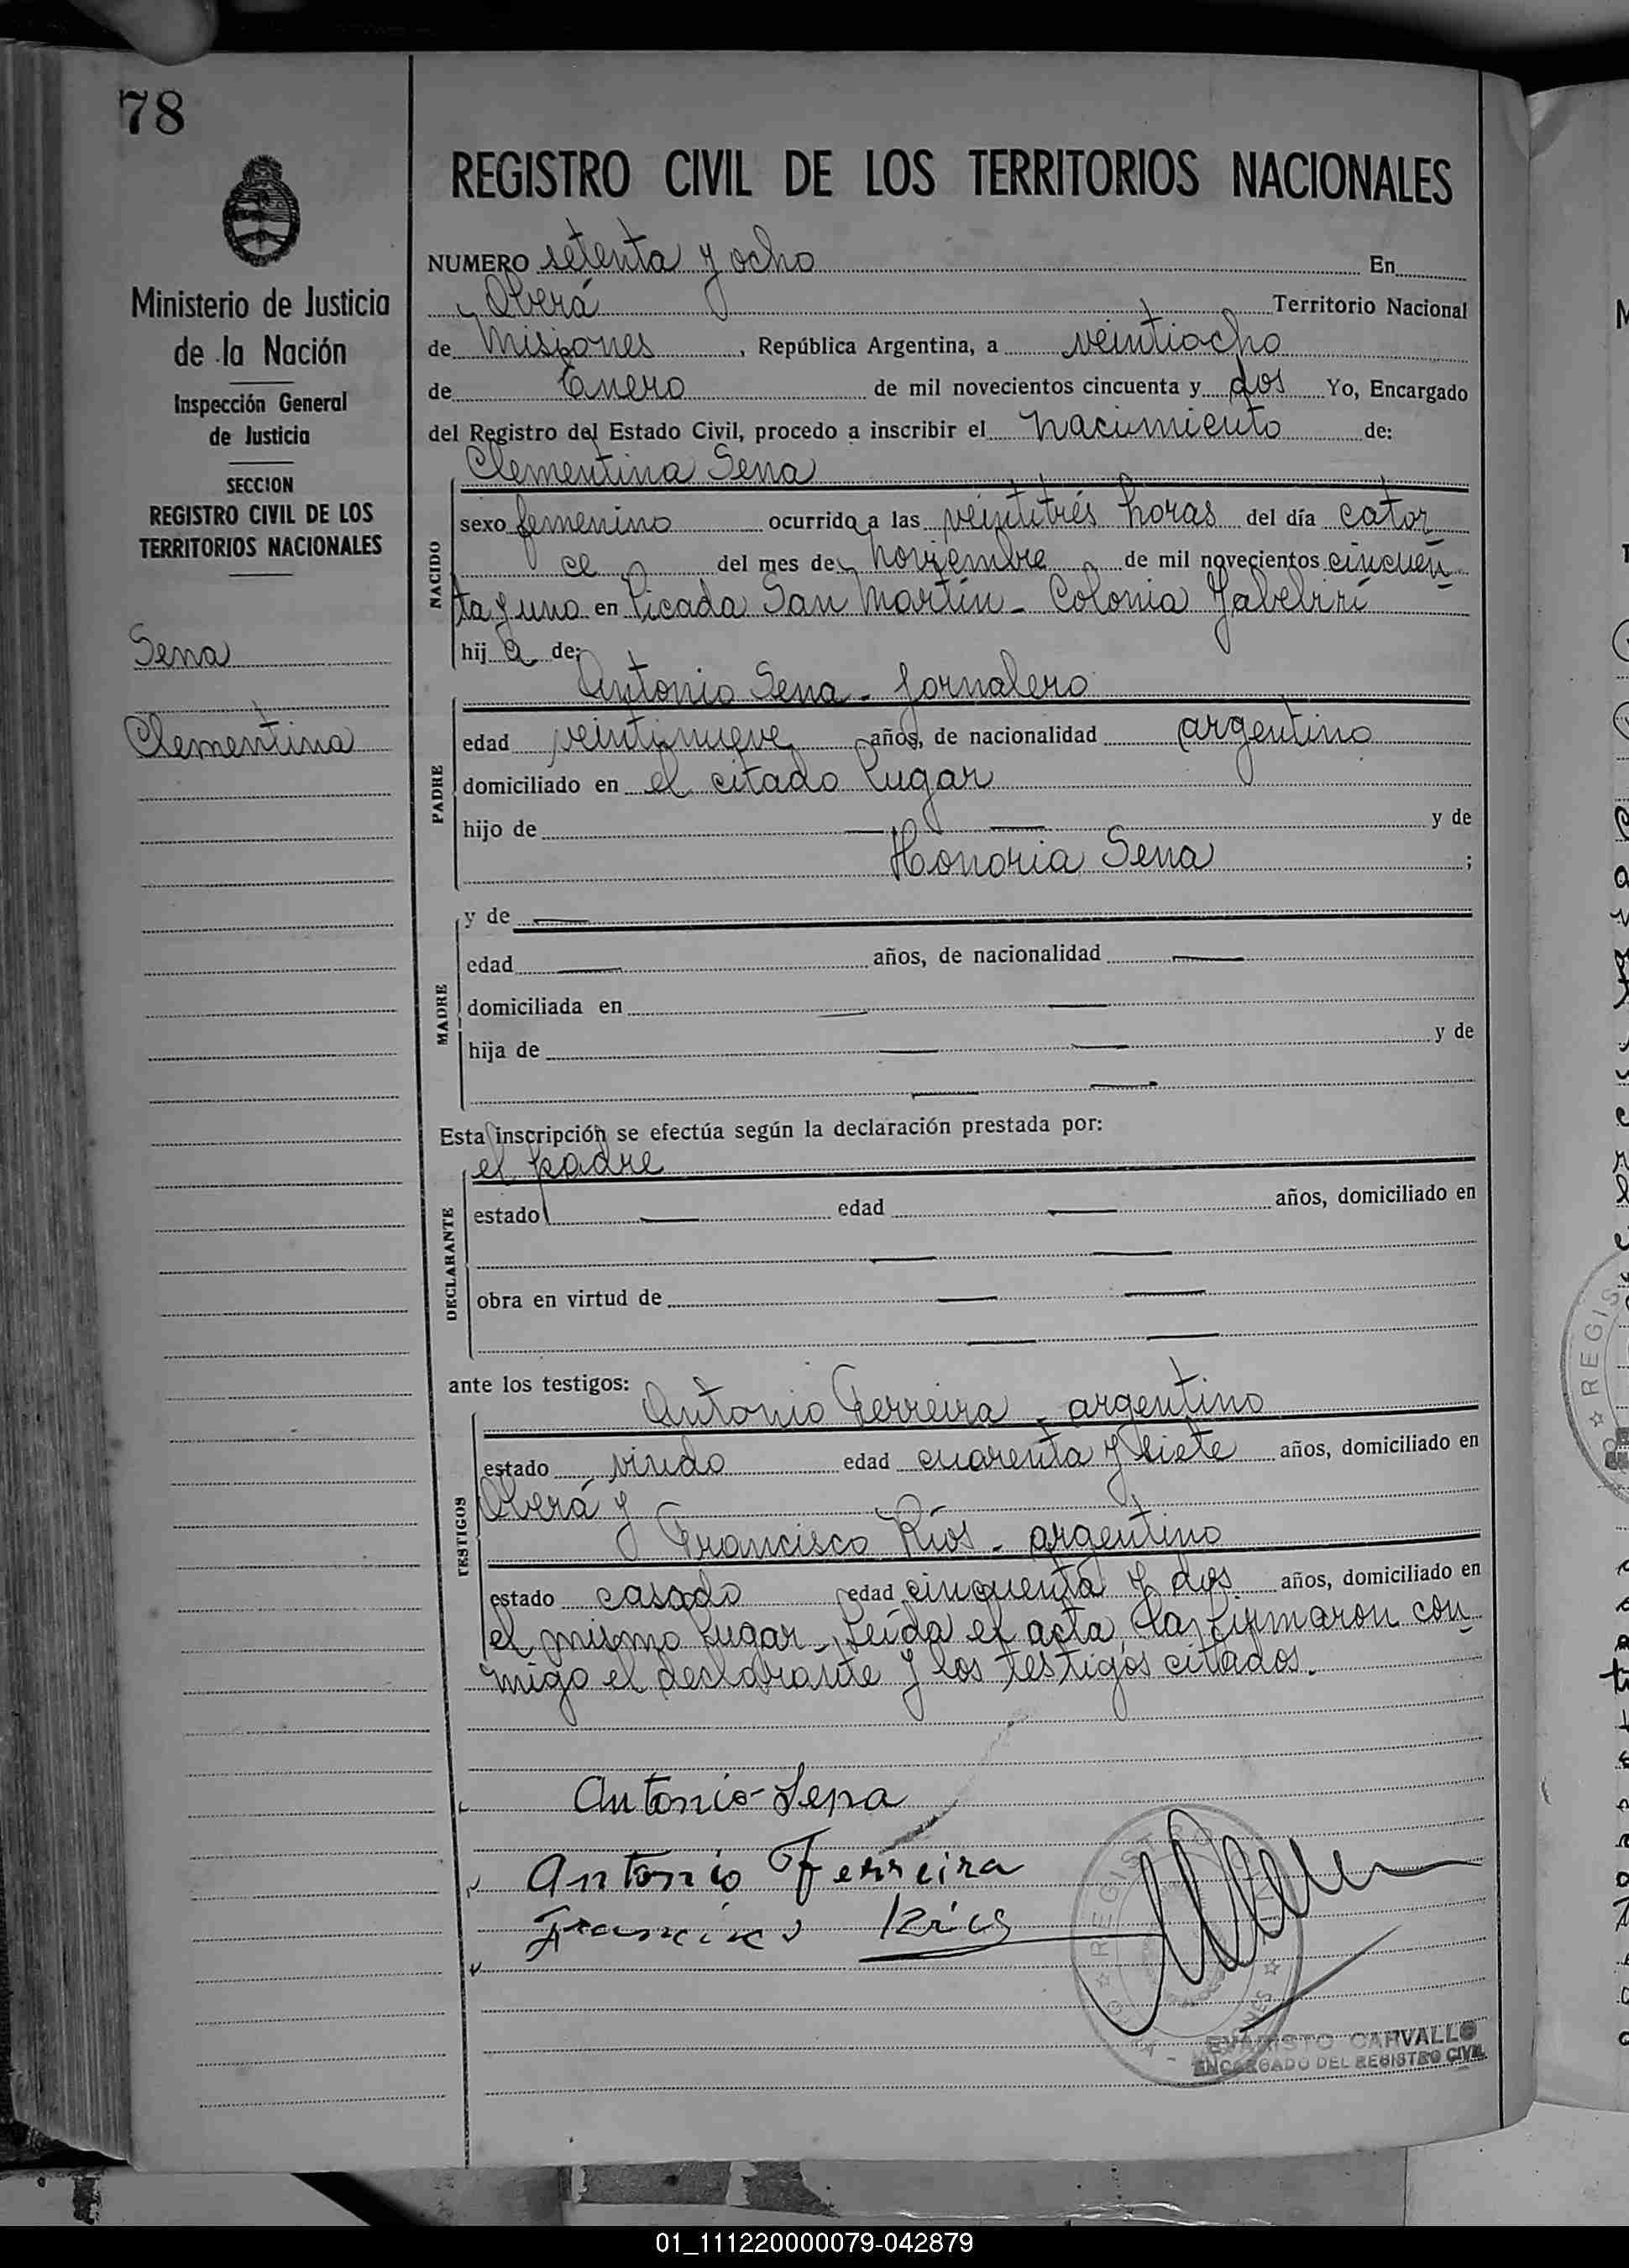 78
Ministerio de Justicia
de la Nación
Inspección General
de Justicia
SECCION
REGISTRO CIVIL DE LOS
TERRITORIOS NACIONALES
Sena
Clementina
REGISTRO CIVIL DE LOS TERRITORIOS NACIONALES
NUMERO setenta y ocho En
Oberá Territorio Nacional
de Misiones, República Argentina, a veintiocho
de Enero de mil novecientos cincuenta y dos Yo, Encargado
del Registro del Estado Civil, procedo a inscribir el nacimiento de:
Clementina Sena
NACIDO
sexo femenino ocurrido a las veintitrés horas del día cator
ce del mes de noviembre de mil novecientos cincuen
ta y uno en Picada San Martín - Colonia Yabebirí
hij a de:
Antonio Sena - Jornalero
PADRE
edad veintinueve años, de nacionalidad argentino
domiciliado en el citado lugar
hijo de — — y de
Honoria Sena ;
MADRE
y de —
edad — años, de nacionalidad —
domiciliada en — —
hija de — — y de
— —
Esta inscripción se efectúa según la declaración prestada por:
el padre
DECLARANTE
estado — edad — años, domiciliado en
— —
obra en virtud de — —
— —
ante los testigos:
Antonio Ferreira - argentino
TESTIGOS
estado viudo edad cuarenta y siete años, domiciliado en
Oberá y
Francisco Ríos - argentino
estado casado edad cincuenta y dos años, domiciliado en
el mismo lugar - Leída el acta, la firmaron con
migo el declarante y los testigos citados.
Antonio Sena
Antonio Ferreira
Francisco Ríos
REGIST
EVARISTO CARVALLO
ENCARGADO DEL REGISTRO CIVIL
REGIS
01_111220000079-042879